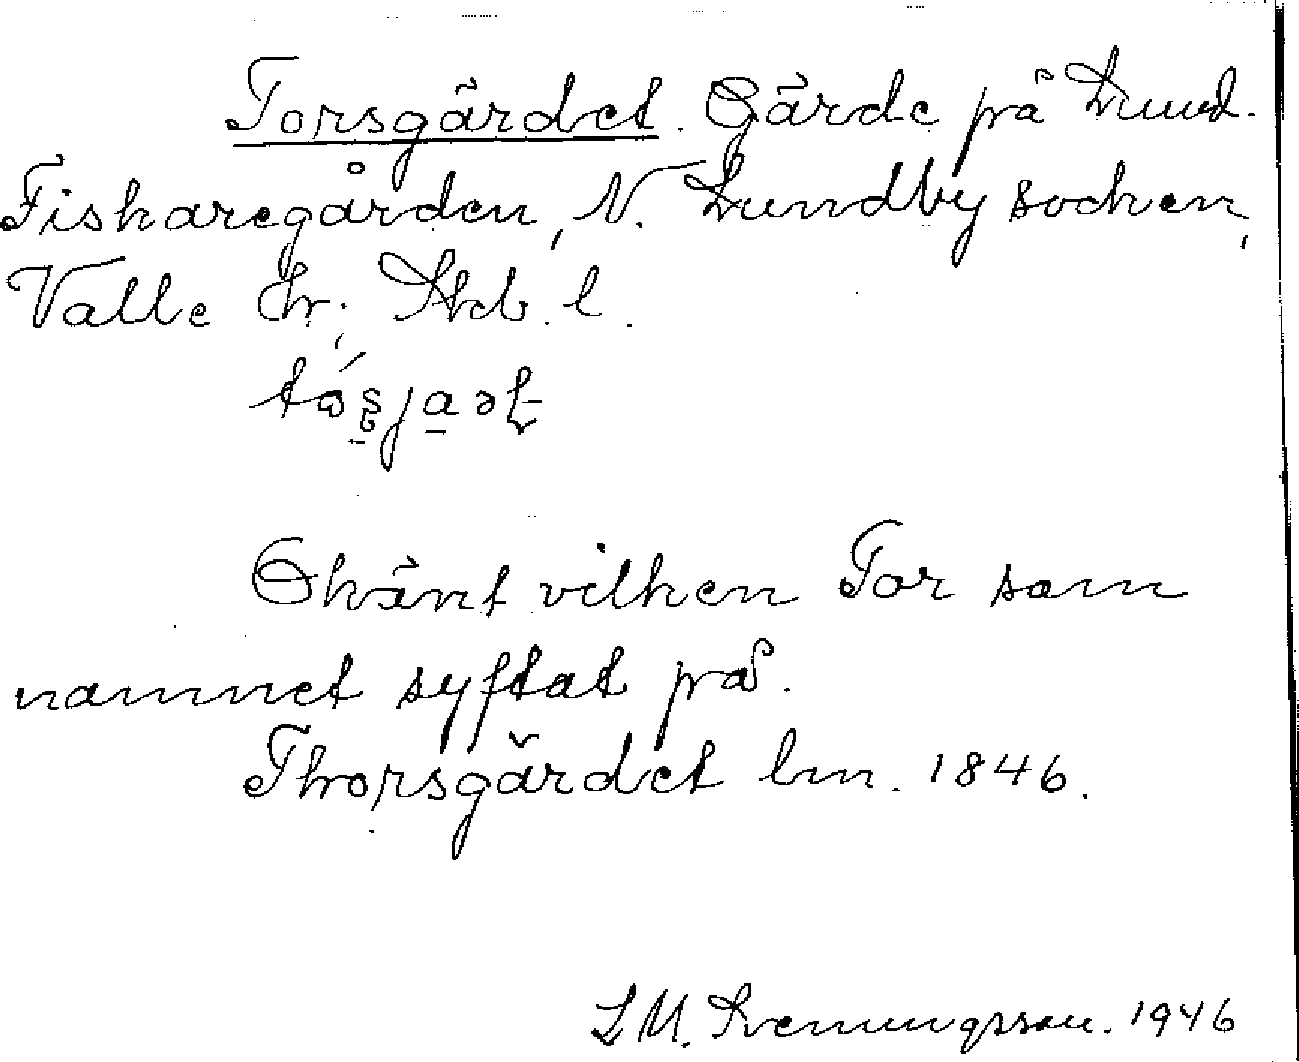 Torsgärdet. Gärde på Lund.
Fiskaregården, N. Lundby socken,
Valle hr; Skb. l.
Okänt vilken Tor som
namnet syftat på.
Thorsgärdet lm. 1846.
L M. Svenungsson. 1946